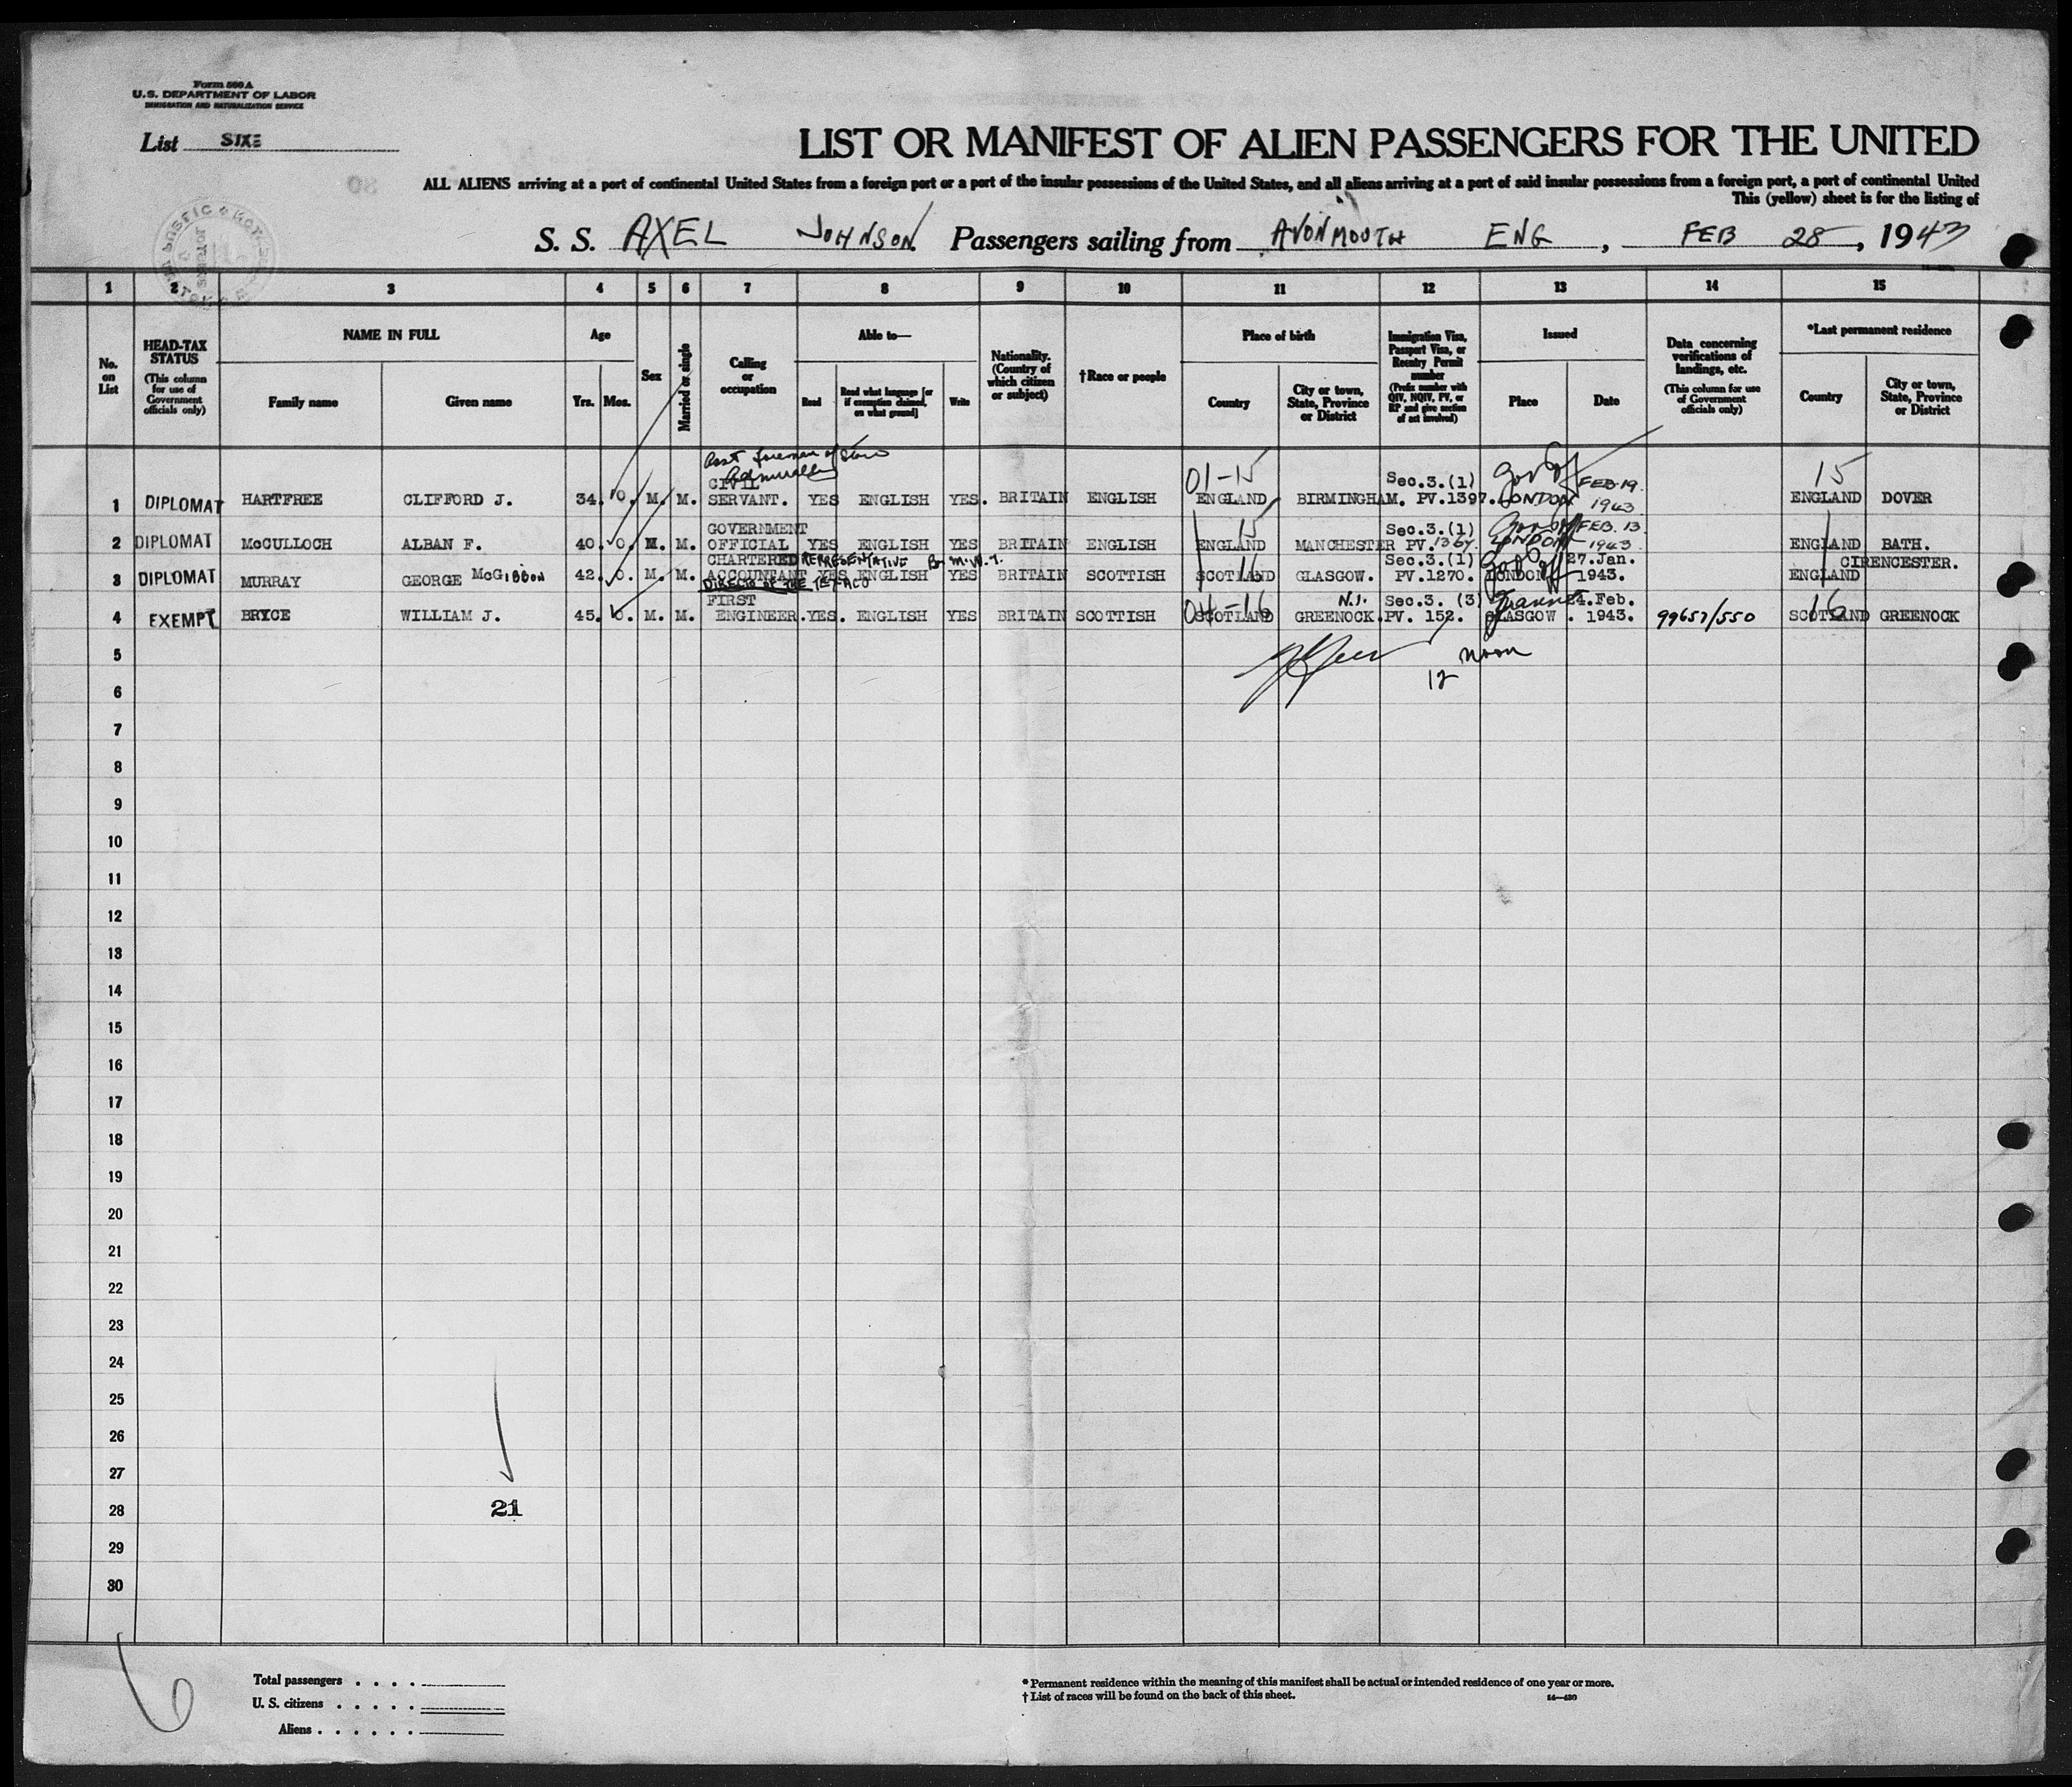 Form 500 A
U. S. DEPARTMENT OF LABOR
IMMIGRATION AND NATURALIZATION SERVICE
List SIXE
LIST OR MANIFEST OF ALIEN PASSENGERS FOR THE UNITED
ALL ALIENS arriving at a port of continental United States from a foreign port or a port of the insular possessions of the United States, and all aliens arriving at a port of said insular possessions from a foreign port, a port of continental United
This (yellow) sheet is for the listing of
S. S. AXEL JOHNSON Passengers sailing from AVONMOUTH ENG , FEB 28, 1943
1 2 3 4 5 6 7 8 9 10 11 12 13 14 15
No. on List
HEAD-TAX STATUS
(This column for use of Government officials only)
NAME IN FULL
Family name Given name
Age
Yrs. Mos.
Sex
Married or single
Calling or occupation
Able to—
Read Read what language [or if exemption claimed, on what ground] Write
Nationality. (Country of which citizen or subject)
†Race or people
Place of birth
Country City or town, State, Province or District
Immigration Visa, Passport Visa, or Reentry Permit number
(Prefix number with QIV, NQIV, PV, or RP and give section of act involved)
Issued
Place Date
Data concerning verifications of landings, etc.
(This column for use of Government officials only)
*Last permanent residence
Country City or town, State, Province or District
Asst foreman of Store
Admiralty
01-15 15
CIVIL Sec.3.(1) FEB.19.
1 DIPLOMAT HARTFREE CLIFFORD J. 34. 10. M. M. SERVANT. YES ENGLISH YES. BRITAIN ENGLISH ENGLAND BIRMINGHAM. PV.1397. LONDON 1943 ENGLAND DOVER
GOVERNMENT 15 Sec.3.(1) FEB. 13
2 DIPLOMAT McCULLOCH ALBAN F. 40. 0. M. M. OFFICIAL YES ENGLISH YES BRITAIN ENGLISH ENGLAND MANCHESTER PV. LONDON 1943. ENGLAND BATH.
CHARTERED REPRESENTATIVE Br M.W.T. 16 Sec.3.(1) 27.Jan. CIRENCESTER.
3 DIPLOMAT MURRAY GEORGE McGIBBON 42. 0. M. M. ACCOUNTANT YES ENGLISH YES BRITAIN SCOTTISH SCOTLAND GLASGOW. PV.1270. LONDON 1943. ENGLAND
DIRECTO OF THE TETACO
FIRST N.I. Sec.3. (3) Transit 24.Feb.
4 EXEMPT BRYCE WILLIAM J. 45. 0. M. M. ENGINEER. YES. ENGLISH YES BRITAIN SCOTTISH 04-16 SCOTLAND GREENOCK. PV. 152. GLASGOW . 1943. 99657/550 16 SCOTLAND GREENOCK
5
noon
6 12
7
8
9
10
11
12
13
14
15
16
17
18
19
20
21
22
23
24
25
26
27
28 21
29
30
6
Total passengers . . . .
U. S. citizens . . . . .
Aliens . . . . . .
* Permanent residence within the meaning of this manifest shall be actual or intended residence of one year or more.
† List of races will be found on the back of this sheet.
14—430